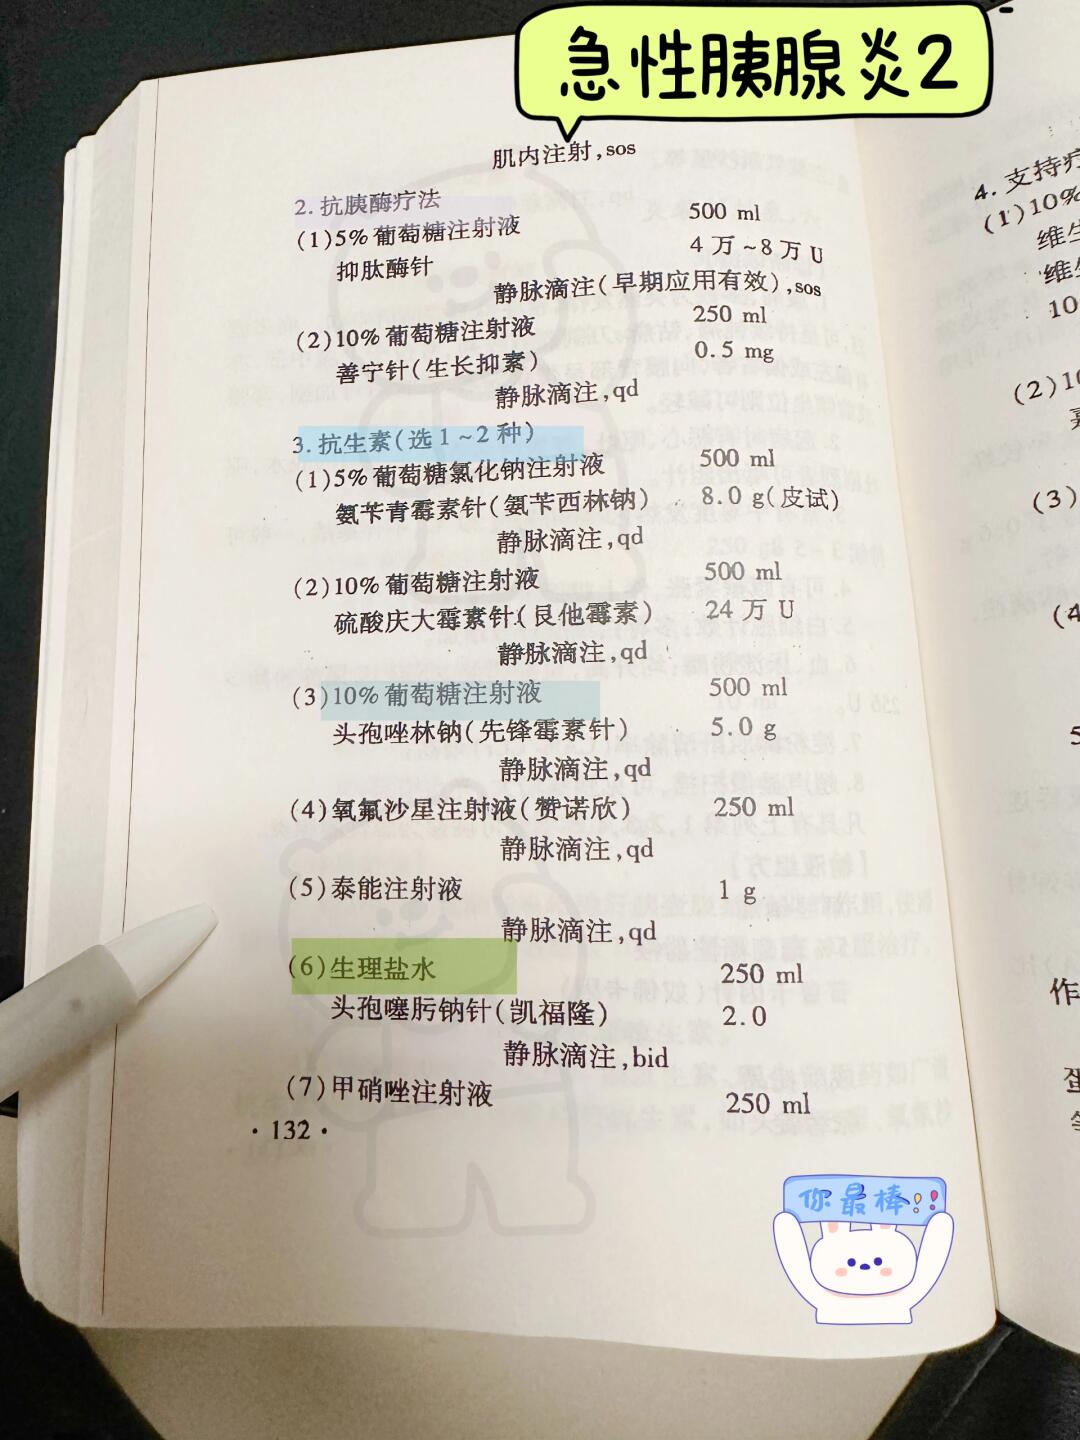 急性胰腺炎2
肌内注射,sos
2.抗胰酶疗法
(1)5%葡萄糖注射液 500 ml
抑肽酶针 4万~8万U
静脉滴注(早期应用有效),sos
(2)10%葡萄糖注射液 250 ml
善宁针(生长抑素) 0.5 mg
静脉滴注,qd
3.抗生素(选1~2种)
(1)5%葡萄糖氯化钠注射液 500 ml
氨苄青霉素针(氨苄西林钠) 8.0 g(皮试)
静脉滴注,qd
(2)10%葡萄糖注射液 500 ml
硫酸庆大霉素针(艮他霉素) 24万U
静脉滴注,qd
(3)10%葡萄糖注射液 500 ml
头孢唑林钠(先锋霉素针) 5.0 g
静脉滴注,qd
(4)氧氟沙星注射液(赞诺欣) 250 ml
静脉滴注,qd
(5)泰能注射液 1 g
静脉滴注,qd
(6)生理盐水 250 ml
头孢噻肟钠针(凯福隆) 2.0
静脉滴注,bid
(7)甲硝唑注射液 250 ml
·132·
4.支持疗
(1)10%
维生
维生
10
(2)10
(3)
(4
5
作
蛋
你最棒!!